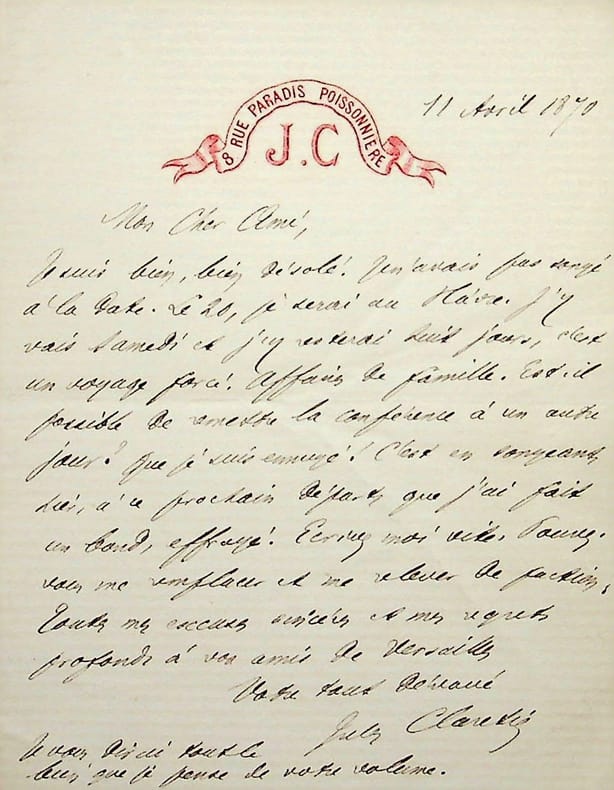 8 RUE PARADIS POISSONNIERE
J.C
11 Avril 1870
Mon Cher Ami,
Je suis bien, bien désolé! Je n'avais pas songé
à la date. Le 20, je serai au Hâvre. J'y
vais Samedi et j'y resterai huit jours, c'est
un voyage forcé. Affaires de famille. Est-il
possible de remettre la conférence à un autre
jour? Que je suis ennuyé! C'est en songeant,
hier, à ce prochain départ, que j'ai fait
un bond, effrayé! Ecrivez moi vite. Pouvez-
vous me remplacer et me relever de faction,
Toutes mes excuses sincères et mes regrets
profonds à vos amis de Versailles
Votre tout dévoué
Jules Claretie
Je vous dirai tout le
bien que je pense de votre volume.